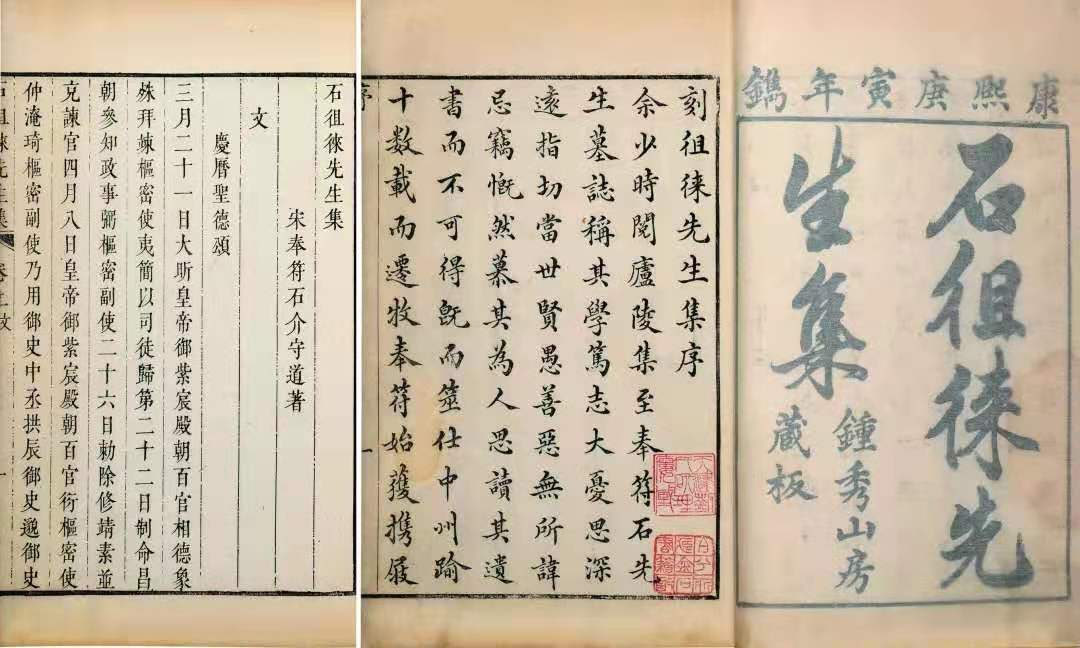 康熙庚寅年鐫
石徂徠先
生集
鍾秀山房
藏板
刻徂徠先生集序
余少時閱廬陵集至奉符石先
生墓誌稱其學篤志大憂思深
遠指切當世賢愚善惡無所諱
忌竊慨然慕其為人思讀其遺
書而不可得既而筮仕中州踰
十數載而遷牧奉符始獲攜屐
序 一
石徂徠先生集
宋奉符石介守道著
文
慶曆聖德頌
三月二十一日大昕皇帝御紫宸殿朝百官相德象
殊拜竦樞密使夷簡以司徒歸第二十二日制命昌
朝參知政事弼樞密副使二十六日勑除修靖素並
充諫官四月八日皇帝御紫宸殿朝百官衍樞密使
仲淹琦樞密副使乃用御史中丞拱辰御史邈御史
石徂徠先生集 卷上 一